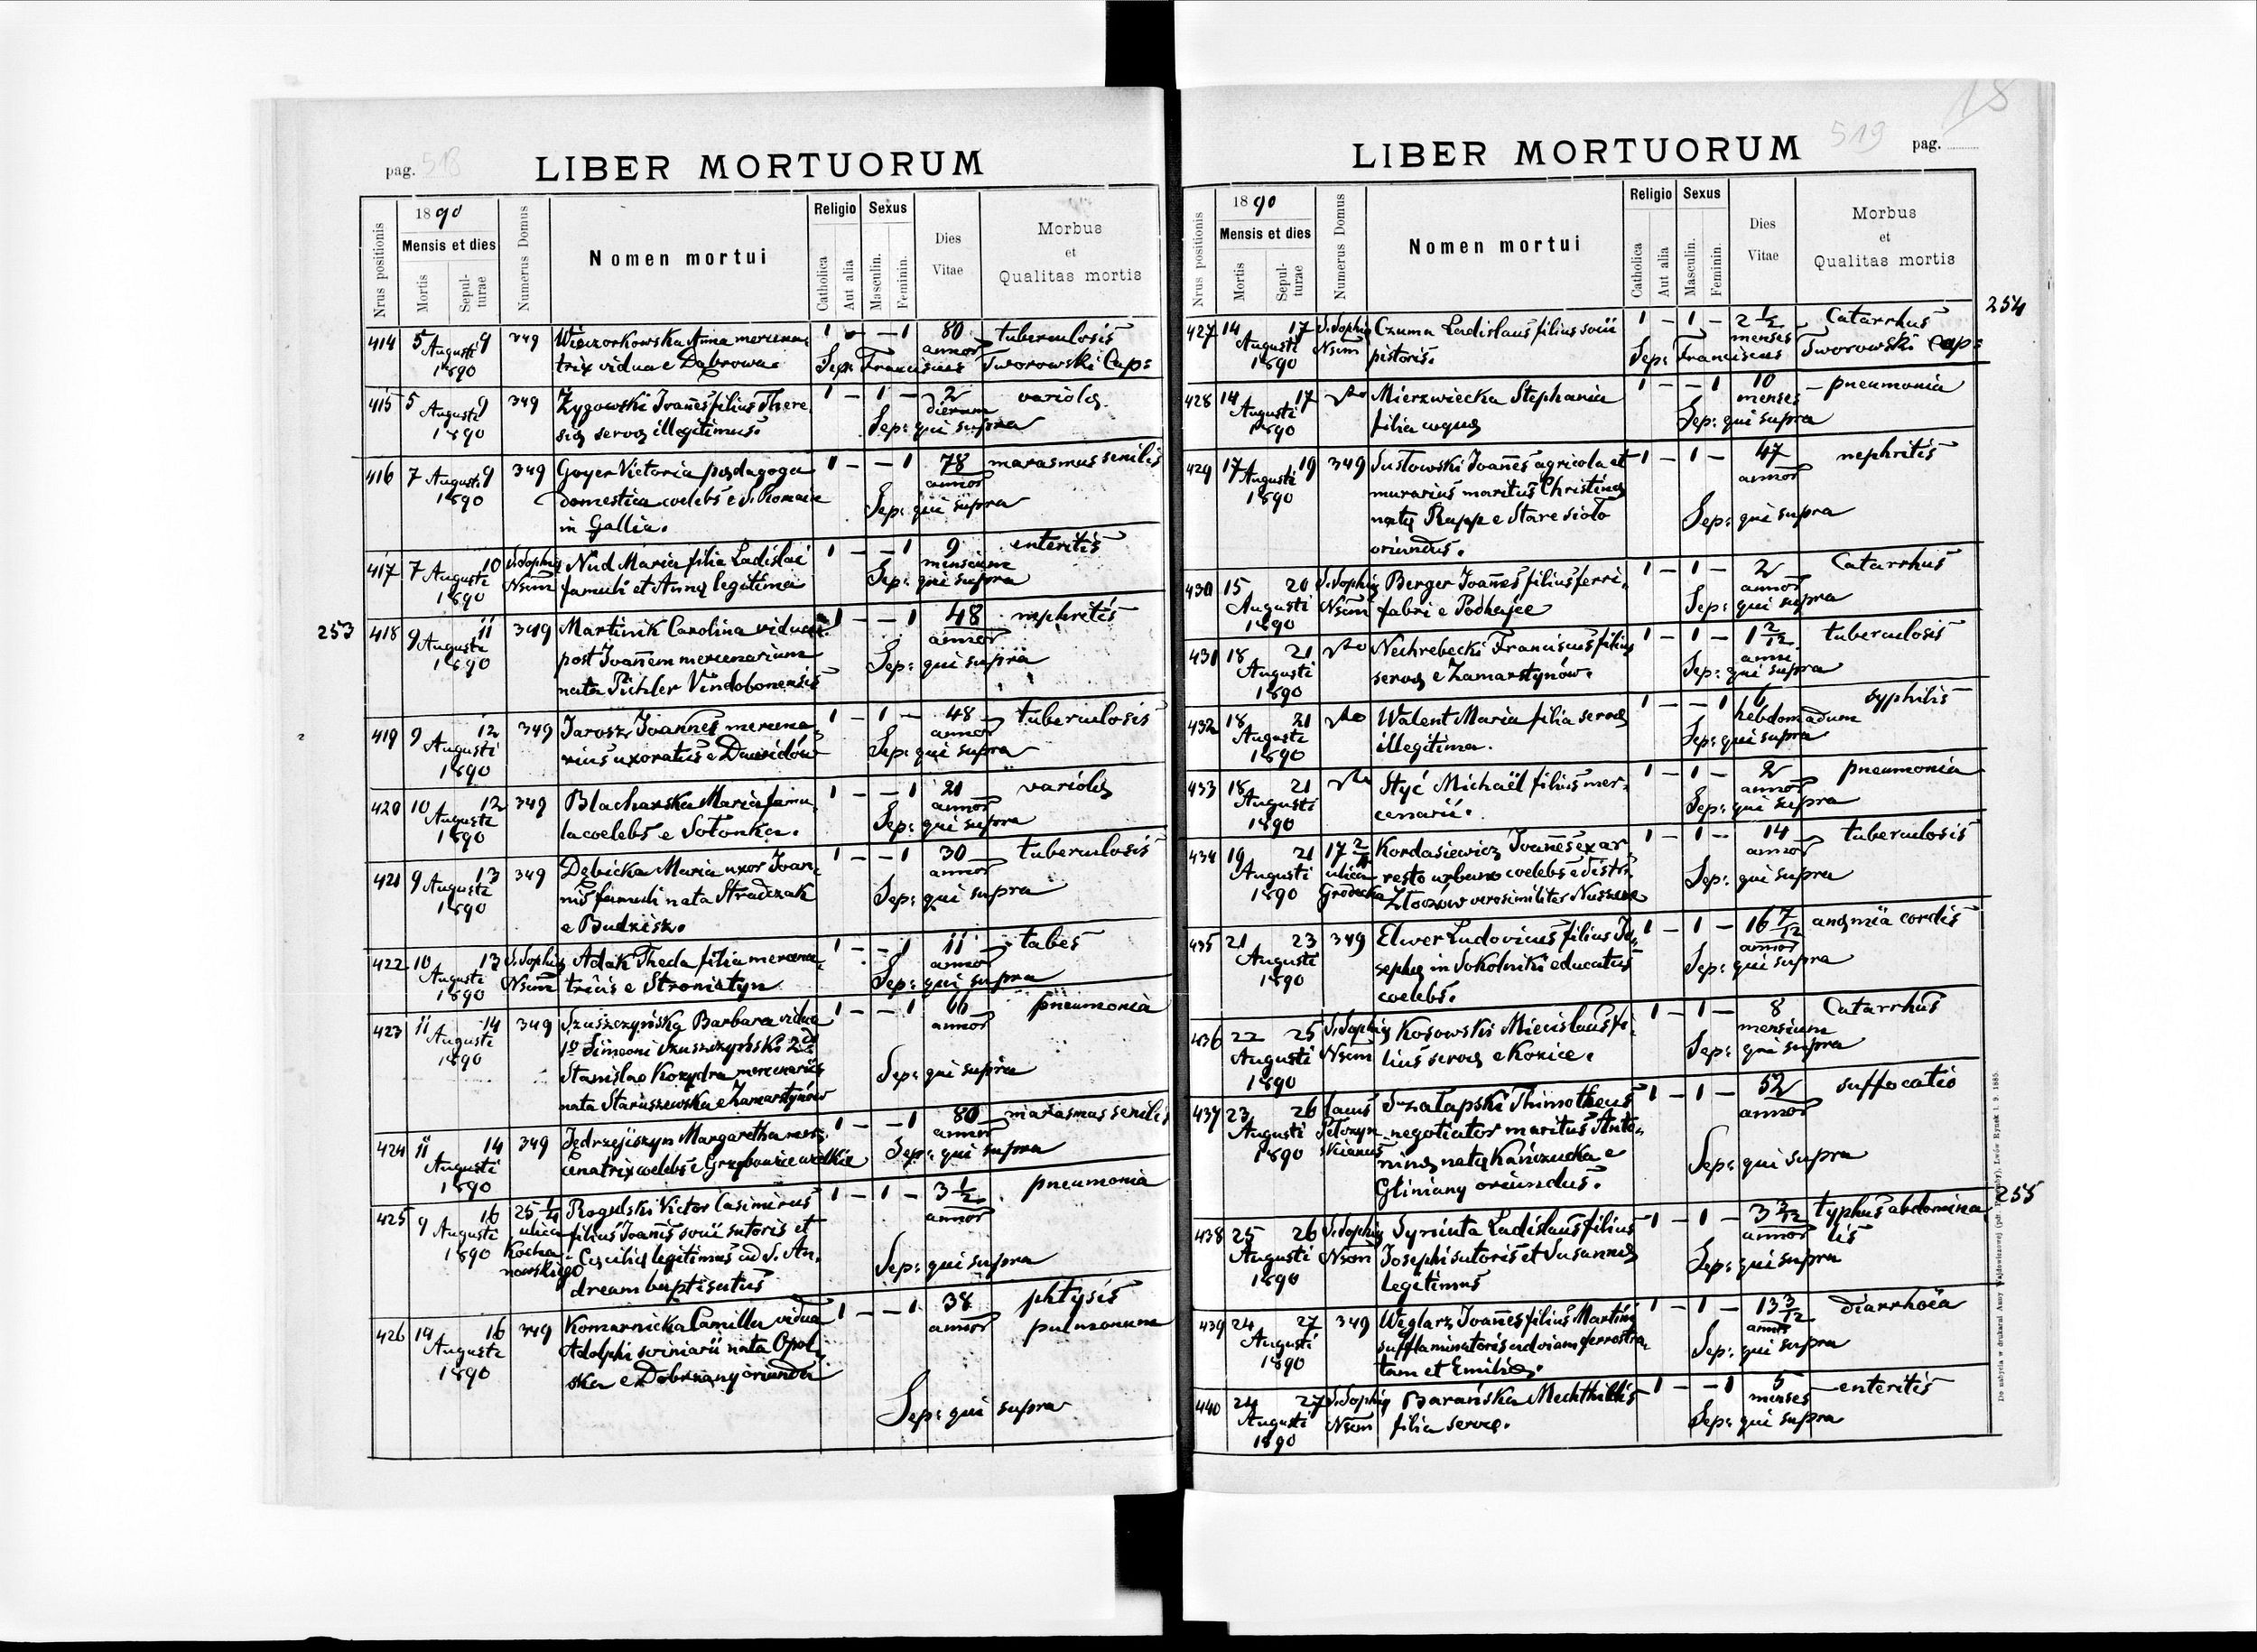 pag. 518
LIBER MORTUORUM
Nrus positionis
1890
Mensis et dies
Mortis
Sepul-
turae
Numerus Domus
Nomen mortui
Religio
Catholica
Aut alia
Sexus
Masculin.
Feminin.
Dies
Vitae
Morbus
et
Qualitas mortis
414 5 9 349 Wieczorkowska Anna mercena- 1 - - 1 80 tuberculosis
Augusti trix vidua e Dąbrowa. annor
1890 Sep: Franciscus Tworowski Cap:
415 5 9 349 Żygowski Joañes filius There- 1 - 1 - 2 variola
Augusti siæ servæ illegitimus. dierum
1890 Sep: qui supra
416 7 9 349 Goyer Victoria pædagoga 1 - - 1 78 marasmus senilis
Augusti domestica coelebs e S. Romain annor
1890 in Gallia. Sep: qui supra
417 7 10 S. Sophiæ Nud Maria filia Ladislai 1 - - 1 9 enteritis
Augusti Nsum famuli et Annæ legitima mensium
1890 Sep: qui supra
253
418 9 11 349 Martinik Carolina vidua 1 - - 1 48 nephritis
Augusti post Joañem mercenarium annor
1890 nata Pichler Vindobonensis Sep: qui supra
419 9 12 349 Jarosz Joannes mercena- 1 - 1 - 48 tuberculosis
Augusti rius uxoratus e Dawidów annor
1890 Sep: qui supra
420 10 12 349 Blacharska Maria famu- 1 - - 1 21 variola
Augusti la coelebs e Sołonka. annor
1890 Sep: qui supra
421 9 13 349 Dębicka Maria uxor Joan- 1 - - 1 30 tuberculosis
Augusti nis famuli nata annor
1890 e Budzisz. Sep: qui supra
422 10 13 S. Sophiæ Adak Theda filia mercena- 1 - - 1 11 tabes
Augusti Nsum tricis e Stroniatyn annor
1890 Sep: qui supra
423 11 14 349 Szuszczyńska Barbara vidua 1 - - 1 66 pneumonia
Augusti 1º Simeoni Szuszczyński 2do annor
1890 Stanislao Kozydra mercenariis Sep: qui supra
nata Staruszewska e Zamarstynów
424 11 14 349 Jędrzejiszyn Margaretha mer- 1 - - 1 80 marasmus senilis
Augusti cenatrix coelebs e Grzybowice wielkie annor
1890 Sep: qui supra
425 9 16 25 1/4 Rogulski Victor Casimirus 1 - 1 - 3 1/2 pneumonia
Augusti ulica filius Joañis socii sutoris et annor
1890 Kocha- Cæciliæ legitimus ad S. An-
nowskiego dream baptisatus Sep: qui supra
426 14 16 349 Komarnicka Camilla vidua 1 - - 1 38 phtysis
Augusti Adolphi scriniarii nata Opol- annor pulmonum
1890 ska e Dobrzany oriunda
Sep: qui supra
519 pag.
18
LIBER MORTUORUM
Nrus positionis
1890
Mensis et dies
Mortis
Sepul-
turae
Numerus Domus
Nomen mortui
Religio
Catholica
Aut alia
Sexus
Masculin.
Feminin.
Dies
Vitae
Morbus
et
Qualitas mortis
254
427 14 17 S. Sophiæ Czuma Ladislaus filius socii 1 - 1 - 2 1/2 Catarrhus
Augusti Nsum pistoris. menses
1890 Sep: Franciscus Tworowski Cap:
428 14 17 Mierzwiecka Stephania 1 - - 1 10 pneumonia
Augusti filia coquæ menses
1890 Sep: qui supra
429 17 19 349 Susłowski Joañes agricola et 1 - 1 - 47 nephritis
Augusti murarius maritus Christinæ annor
1890 natæ Rupp e Stare sioło Sep: qui supra
oriundus.
430 15 20 S. Sophiæ Berger Joañes filius ferri- 1 - 1 - 2 Catarrhus
Augusti Nsum fabri e Podhajce annor
1890 Sep: qui supra
431 18 21 Nechrebecki Franciscus filius 1 - 1 - 1 2/12 tuberculosis
Augusti servæ e Zamarstynów. anni
1890 Sep: qui supra
432 18 21 Walent Maria filia servæ 1 - - 1 6 syphilis
Augusti illegitima. hebdomadum
1890 Sep: qui supra
433 18 21 Styć Michaël filius mer- 1 - 1 - 2 pneumonia
Augusti cenarii. annor
1890 Sep: qui supra
434 19 21 17 2/4 Kordasiewicz Joañes ex ar- 1 - 1 - 14 tuberculosis
Augusti ulica resto urbano coelebs e distr: annor
1890 Grodecka Złoczów verosimiliter Nuszcze Sep: qui supra
435 21 23 349 Elwer Ludovicus filius Jo- 1 - 1 - 16 7/12 anæmia cordis
Augusti sephæ in Sokolniki educatus annor
1890 coelebs. Sep: qui supra
436 22 25 S. Sophiæ Kosowski Miecislaus fi- 1 - 1 - 8 Catarrhus
Augusti Nsum lius servæ e Kozice. mensium
1890 Sep: qui supra
437 23 26 lacus Szałapski Thimotheus 1 - 1 - 52 suffocatio
Augusti Pełczyn- negotiator maritus Anto- annor
1890 skianus ninæ natæ Kańczucka e
Gliniany oriundus. Sep: qui supra
255
438 25 26 S. Sophiæ Syniuta Ladislaus filius 1 - 1 - 3 2/12 typhus abdomina-
Augusti Nsum Josephi sutoris et Susannæ annor lis
1890 legitimus Sep: qui supra
439 24 27 349 Węglarz Joañes filius Martini 1 - 1 - 13 3/12 diarrhoëa
Augusti sufflaminatoris ad viam ferrostra- annor
1890 tam et Emiliæ. Sep: qui supra
440 24 27 S. Sophiæ Barańska Mechthildis 1 - - 1 5 enteritis
Augusti Nsum filia servæ. menses
1890 Sep: qui supra